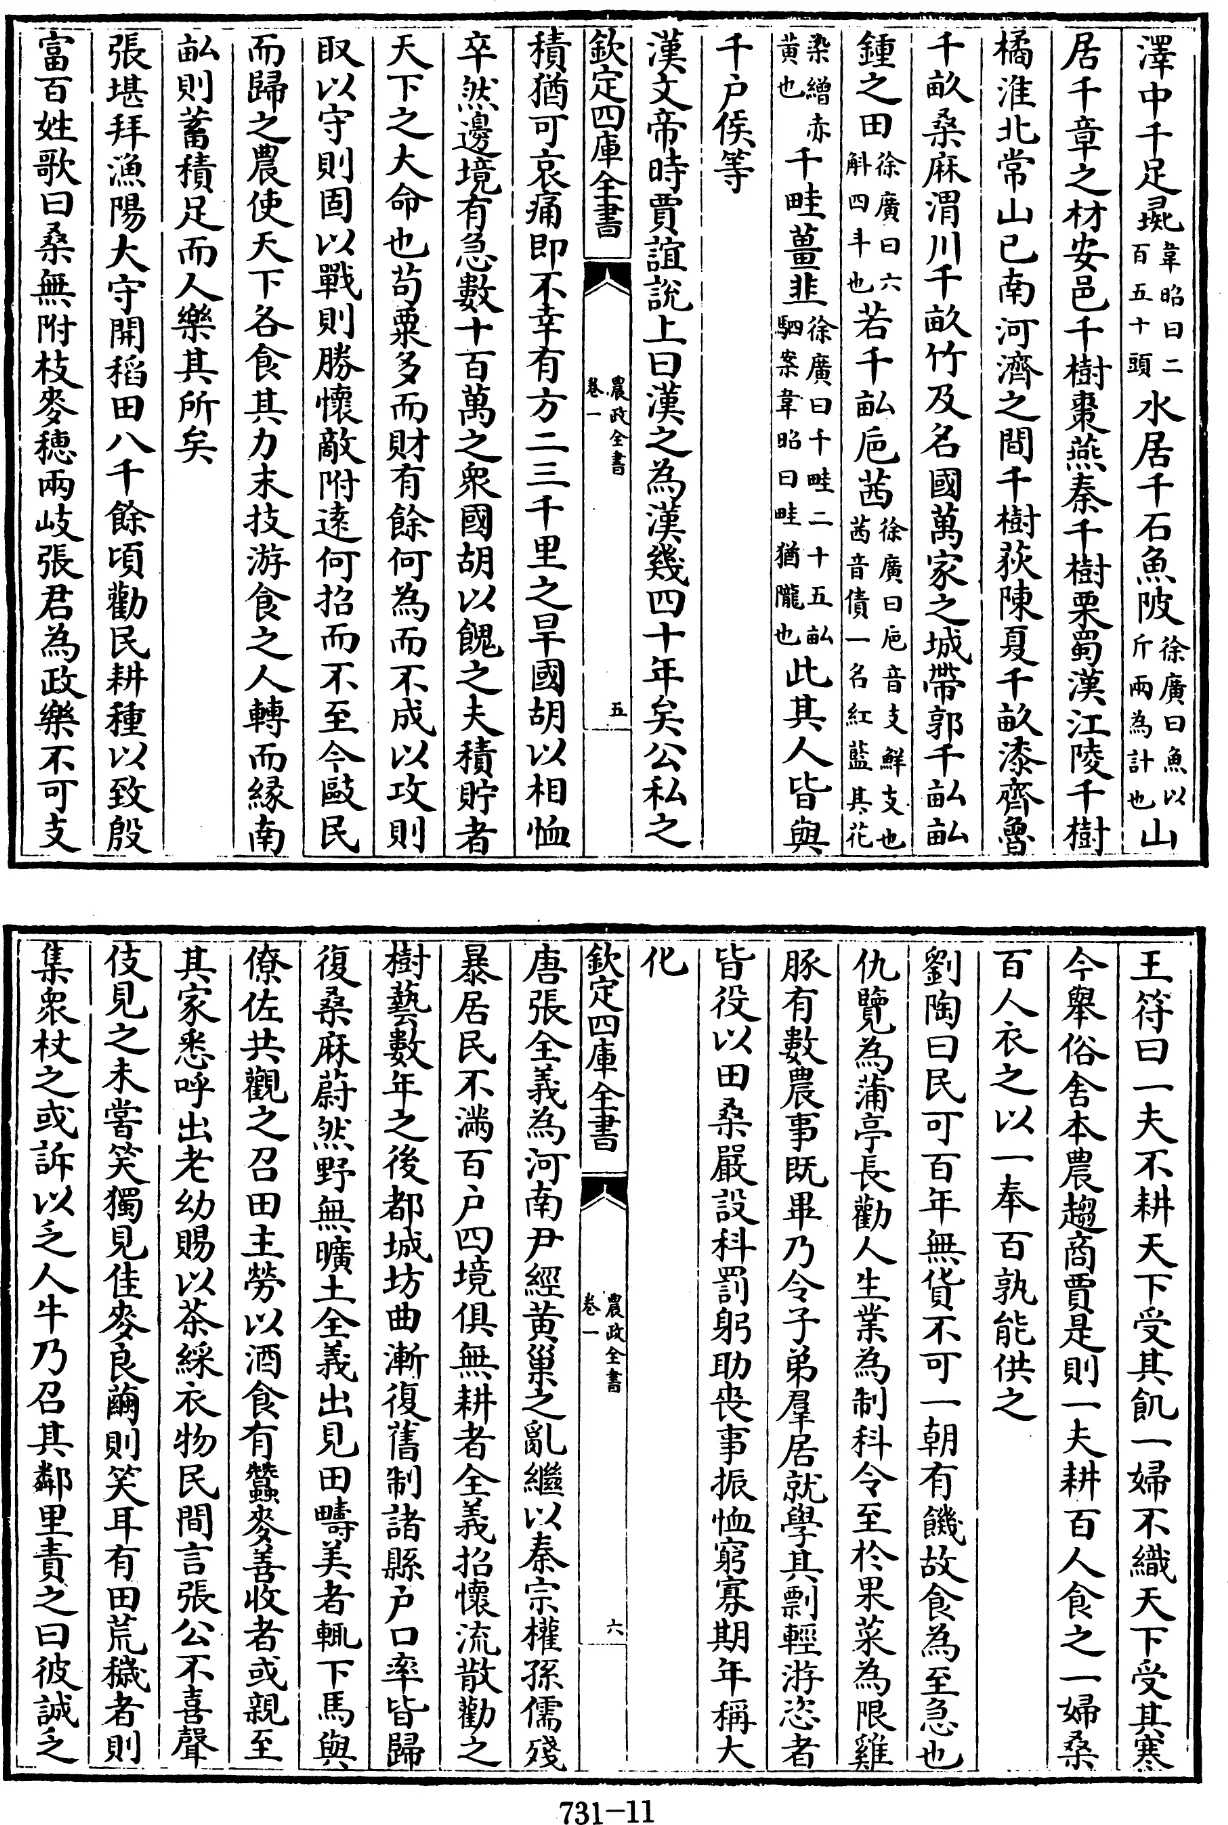 澤中千足彘韋昭曰二百五十頭水居千石魚陂徐廣曰魚以斤兩為計也山
居千章之材安邑千樹棗燕秦千樹栗蜀漢江陵千樹
橘淮北常山已南河濟之間千樹荻陳夏千畝漆齊魯
千畝桑麻渭川千畝竹及名國萬家之城帶郭千畝畝
鍾之田徐廣曰六斛四斗也若千畝巵茜徐廣曰巵音支鮮支也茜音倩一名紅藍其花
染繒赤黄也千畦薑韭徐廣曰千畦二十五畝駰案韋昭曰畦猶隴也此其人皆與
千户侯等
漢文帝時賈誼說上曰漢之為漢幾四十年矣公私之
欽定四庫全書
農政全書
卷一
五
積猶可哀痛即不幸有方二三千里之旱國胡以相恤
卒然邊境有急數十百萬之衆國胡以餽之夫積貯者
天下之大命也苟粟多而財有餘何為而不成以攻則
取以守則固以戰則勝懷敵附逺何招而不至今敺民
而歸之農使天下各食其力末技游食之人轉而緣南
畝則蓄積足而人樂其所矣
張堪拜漁陽太守開稻田八千餘頃勸民耕種以致殷
富百姓歌曰桑無附枝麥穗兩岐張君為政樂不可支
王符曰一夫不耕天下受其飢一婦不織天下受其寒
今舉俗舍本農趨商賈是則一夫耕百人食之一婦桑
百人衣之以一奉百孰能供之
劉陶曰民可百年無貨不可一朝有饑故食為至急也
仇覽為蒲亭長勸人生業為制科令至於果菜為限雞
豚有數農事既畢乃令子弟羣居就學其剽輕游恣者
皆役以田桑嚴設科罰躬助喪事振恤窮寡期年稱大
化
欽定四庫全書
農政全書
卷一
六
唐張全義為河南尹經黄巢之亂繼以秦宗權孫儒殘
暴居民不滿百户四境俱無耕者全義招懷流散勸之
樹藝數年之後都城坊曲漸復舊制諸縣户口率皆歸
復桑麻蔚然野無曠土全義出見田疇美者輒下馬與
僚佐共觀之召田主勞以酒食有蠶麥善收者或親至
其家悉呼出老幼賜以茶綵衣物民間言張公不喜聲
伎見之未嘗笑獨見佳麥良繭則笑耳有田荒穢者則
集衆杖之或訴以乏人牛乃召其鄰里責之曰彼誠乏
731-11